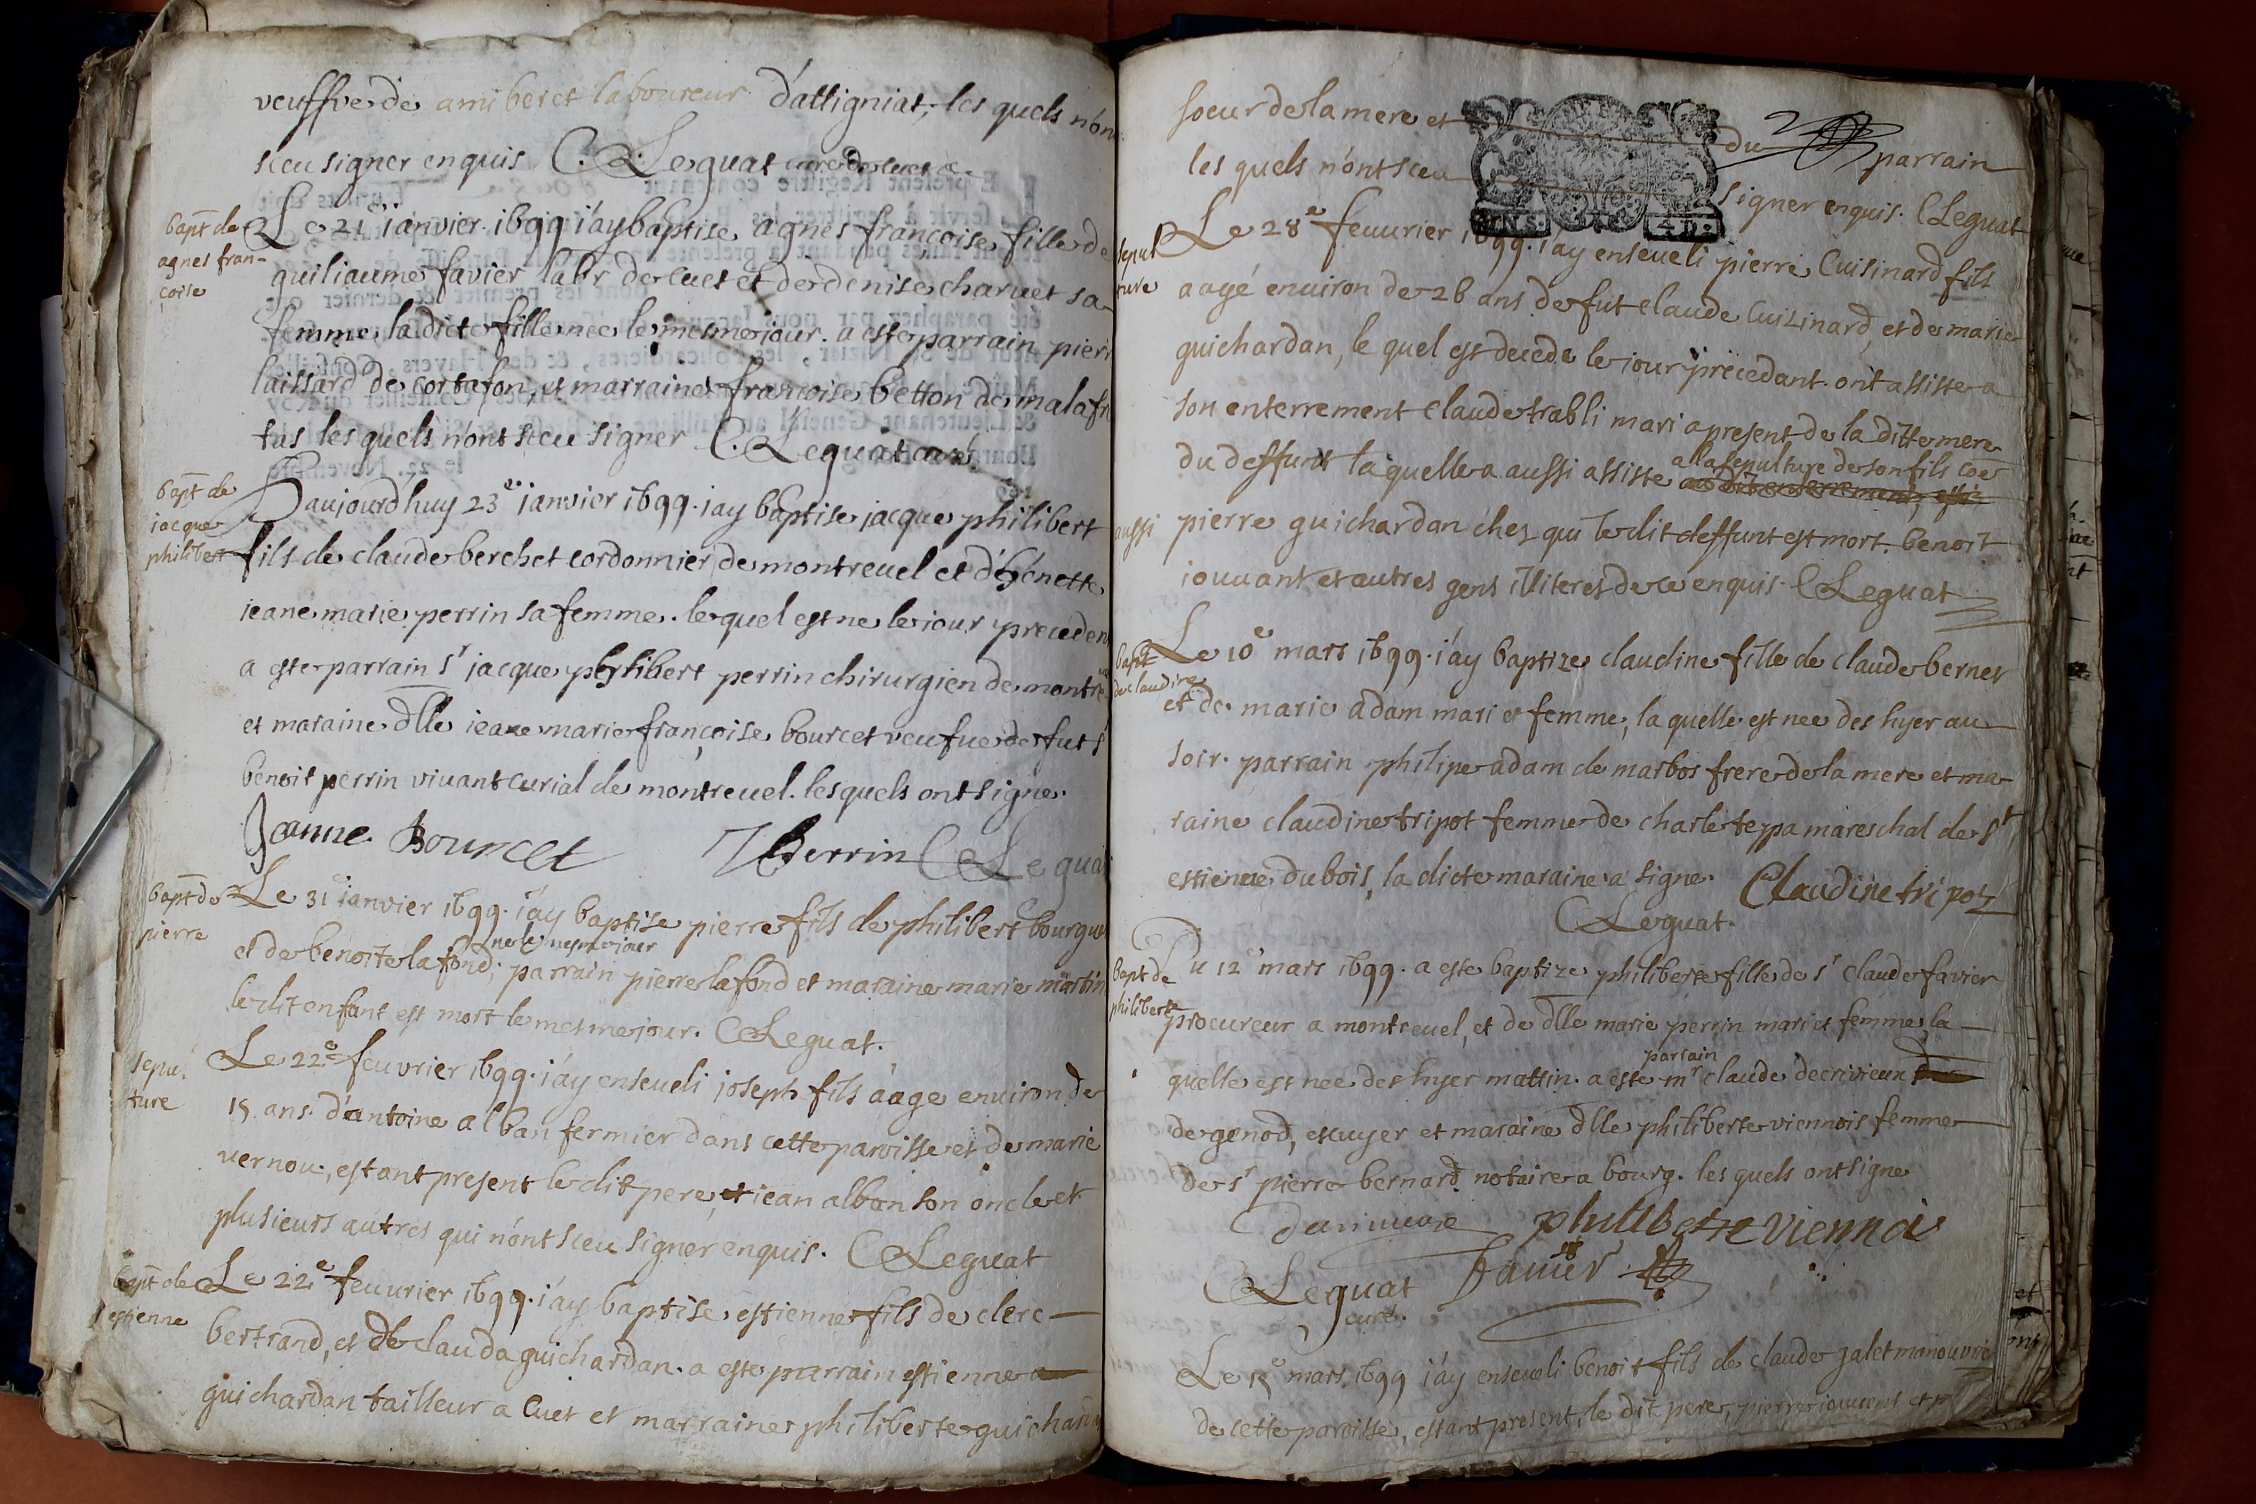 veuffve de ami beret laboureur d'attigniat, les quels n'ont
sceu signer enquis C. Leguat curé de cuet
bapt de
agnes fran-
coise
Le 21 ianvier 1699 i'ay baptise agnes françoise fille de
guiliaume favier labr de cuet et de denise charvet sa
femme, la dicte fille nee le mesme jour. a este parrain pierre
laissard de cortafon, et marraine françoise betton de malafre
tas les quels n'ont sceu signer C. Leguat curé
bapt de
jacque
philibert
D aujourdhuy 23e ianvier 1699. i'ay baptise jacque philibert
fils de claude berchet cordonnier de montrevel et d'hénette
ieane marie perrin sa femme. le quel est ne le iour precedent
a este parrain sr jacque philibert perrin chirurgien de montre
et maraine dlle ieane marie françoise bourcet veufue de fut sr
benoit perrin vivant curial de montrevel. les quels ont signe.
Jeanne Bourcet Perrin C Leguat
bapt de
pierre
Le 31 ianvier 1699. i'ay baptise pierre fils de philibert bourgue
ne le mesme jour
et de benoite lafond, parrain pierre lafond et maraine marie martin
le dit enfant est mort le mesme jour. C Leguat.
sepul
ture
Le 22e feuvrier 1699. i'ay enseveli joseph fils aage environ de
15 ans d'antoine alban fermier dans cette paroisse et de marie
vernou, estant present le dit pere, et iean alban son oncle et
plusieurs autres qui n'ont sceu signer enquis. C Leguat
bapt de
estienne
Le 22e feuvrier 1699. i'ay baptise estienne fils de clerc
bertrand, et de clauda guichardan. a este parrain estienne
guichardan tailleur a Cuet et marraine philiberte guichardan
soeur de la mere et du parrain
les quels n'ont sceu signer enquis. C Leguat
sepul
ture
Le 28e feuurier 1699. i'ay enseveli pierre Cuisinard fils
aagé environ de 26 ans de fut claude Cuisinard, et de marie
guichardan, le quel est decede le iour precedant. ont assiste a
son enterrement claude trabli mari a present de la ditte mere
a la sepulture de son fils coe
du deffunt laquelle a aussi assiste
aussi
pierre guichardan chez qui le dit deffunt est mort. benoit
iouvant et autres gens illiteres de ce enquis. C Leguat
bapt
de claudine
Le 10e mars 1699. i'ay baptize claudine fille de claude berner
et de marie adam mari et femme, la quelle est nee des hyer au
soir. parrain philipe adam de marbos frere de la mere et ma-
raine claudine tripot femme de charle teppa mareschal de St
estienne du bois, la dicte maraine a signe. Claudine tripot
C Leguat.
bapt de
philiberte
Du 12e mars 1699. a este baptize philiberte fille de sr claude favier
procureur a montrevel, et de dlle marie perrin mari et femme, la
parrain
quelle est nee des hyer mattin. a este mr claude decrivieux
de genod, escuyer et maraine dlle philiberte viennois femme
de sr pierre bernard notaire a bourg. les quels ont signe
philiberte viennois
C Leguat favier
curé.
Le 15e mars 1699 i'ay enseveli benoit fils de claude galet manouvrie
de cette paroisse, estant present le dit pere, pierre iouvent et